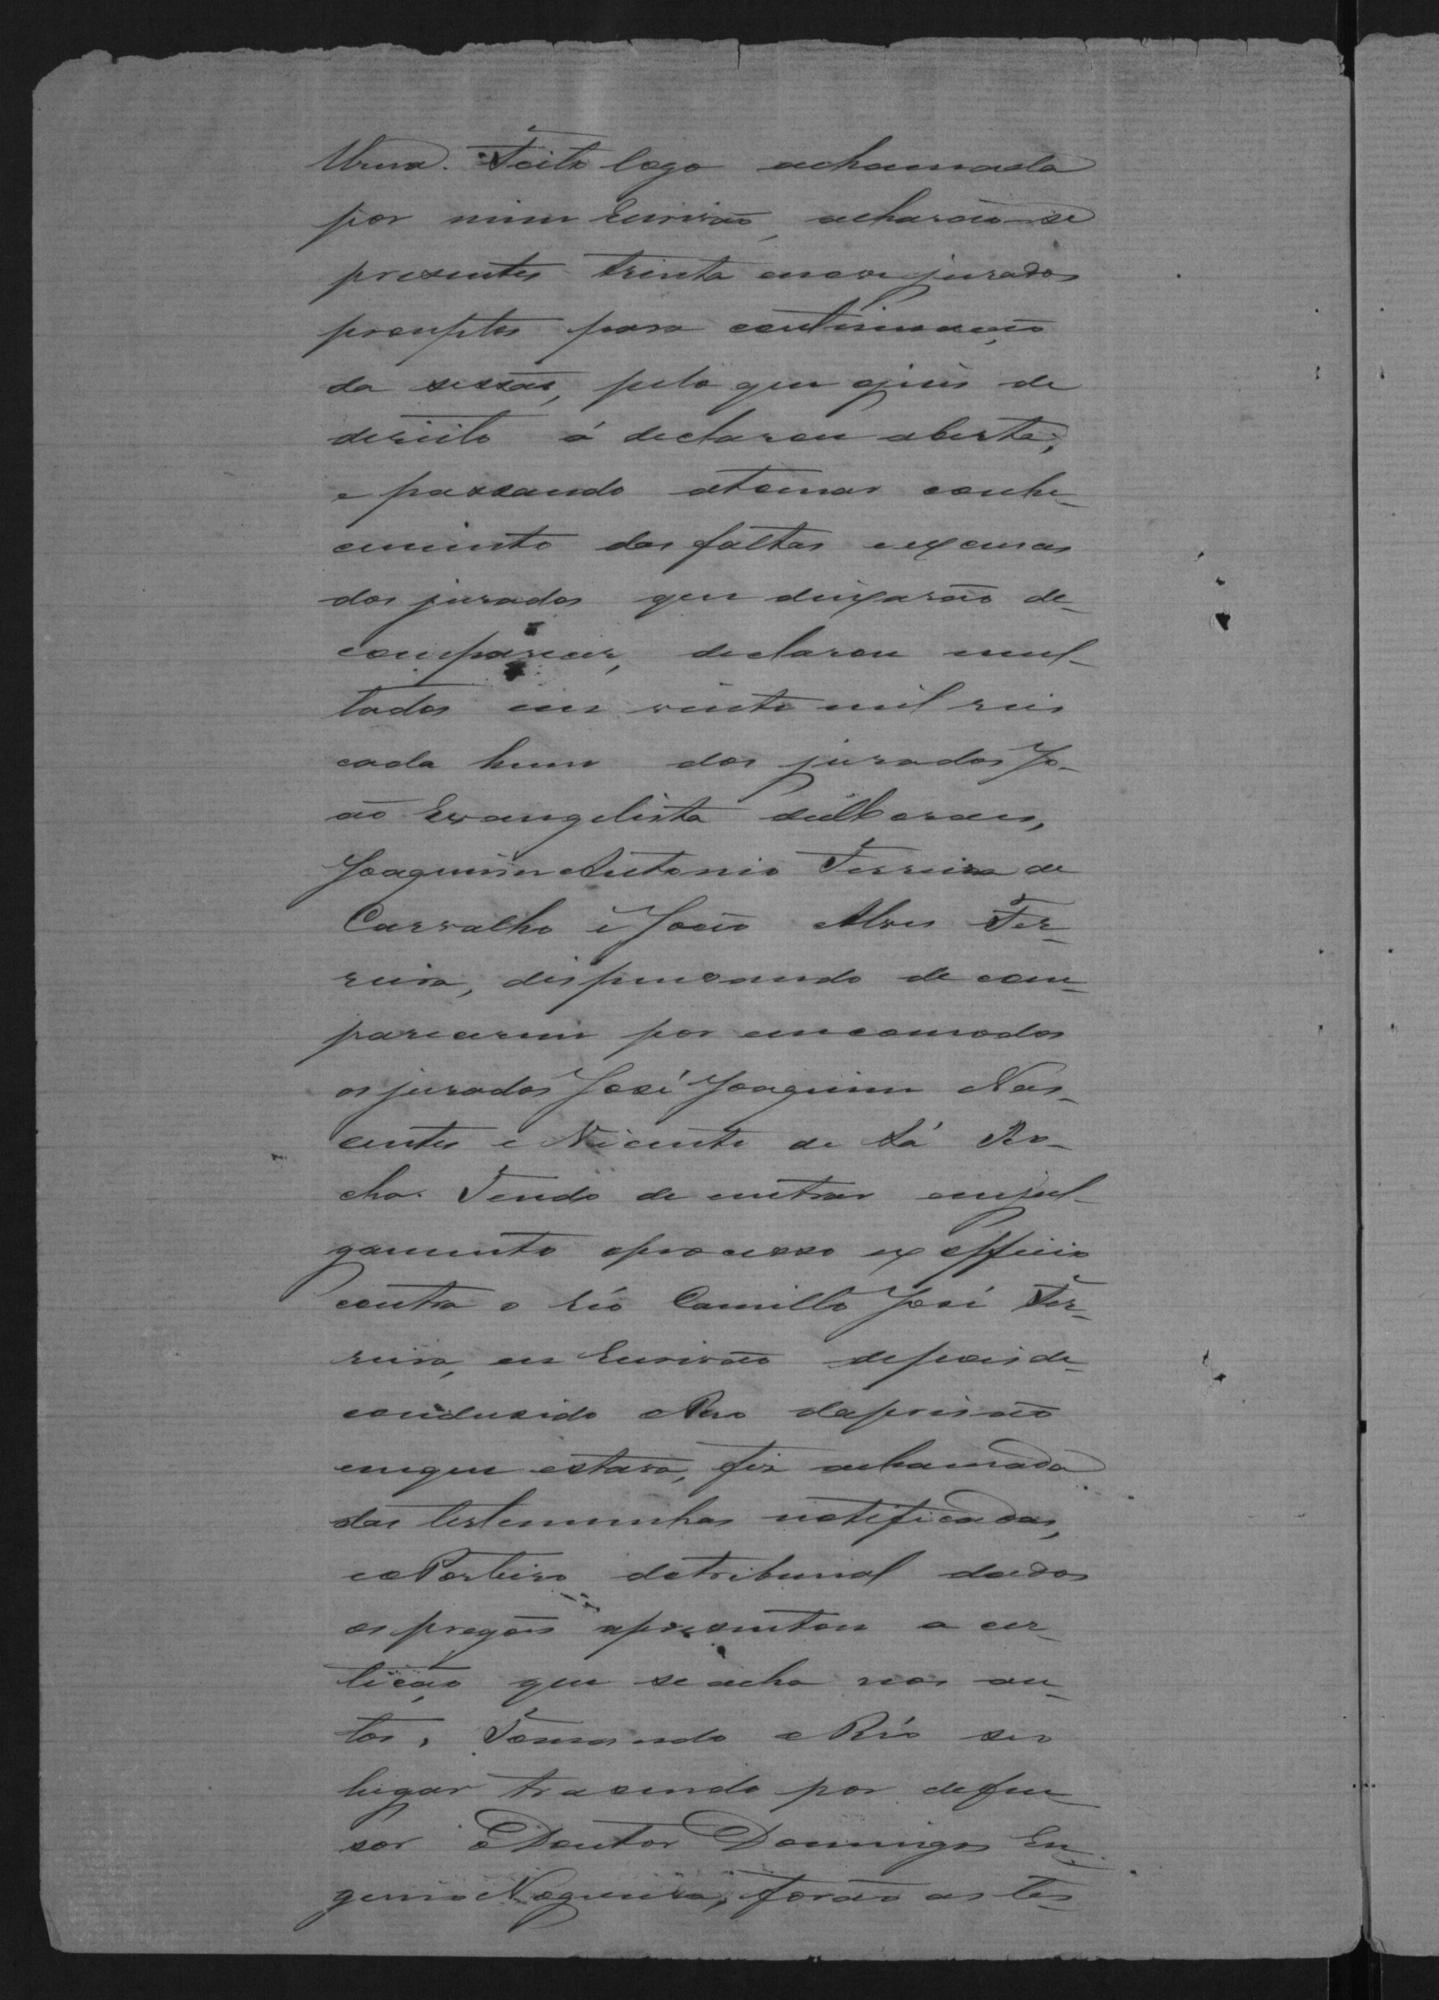 Urna. Feita logo achamada
por mim Escrivão, acharão-se
presentes trinta enove jurados
promptos para continuação
da sessão, pelo que ojuis de
direito á declarou aberta;
e passando atomar conhe-
cimento das faltas eexcusas
dos jurados que deixarão de-
comparecer, declarou mul-
tados em vinte mil reis
cada hum dos jurados Jo-
ão Evangelista
Joaquim Antonio Ferreira de
Carvalho e João Alves Fer-
reira, dispensando de com-
parecerem por encomodos
os jurados José Joaquim Nas-
centes e Vicente de Sá Ro-
cha. Tendo de entrar emjul-
gamento oprocesso ex officio
contra o réo Camillo José Fer-
reira, eu Escrivão depois de-
condusido oReo daprisão
emque estava, fiz achamada
das testemunhas notificadas,
eoPorteiro dotribunal dados
os pregões apresentou a cer-
tidão que se acha nos au-
tos. Tomando o Réo seo
lugar trasendo por defen
sor o Doutor Domingos Eu-
genio Nogueira, forão as tes-